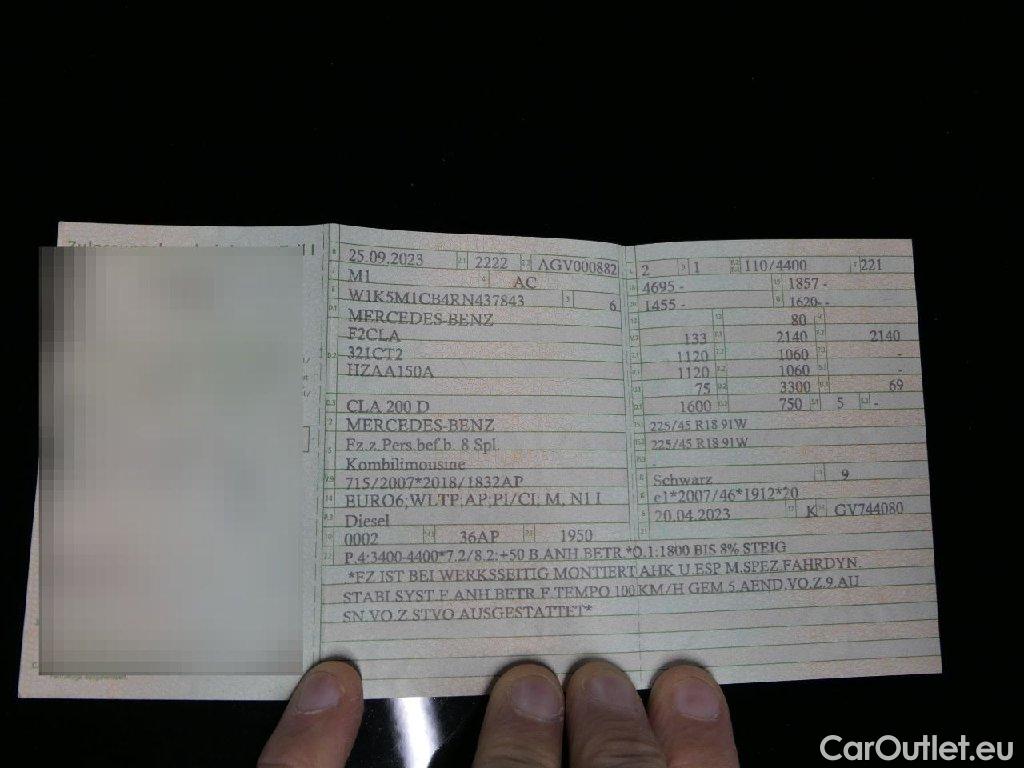 25.09.2023 2222 AGV000882
M1 AC
W1K5M1CB4RN437843 6
MERCEDES-BENZ
F2CLA
321CT2
HZAA150A
CLA 200 D
MERCEDES-BENZ
Fz.z.Pers.bef.b. 8 Spl.
Kombilimousine
715/2007*2018/1832AP
EURO6;WLTP;AP;PI/CI; M, N1 I
Diesel
0002 36AP 1950
2 1 110/4400 221
4695 - 1857 -
1455 - 1620- -
80
133 2140 2140
1120 1060 -
1120 1060 -
75 3300 69
1600 750 5 -
225/45 R18 91W
225/45 R18 91W
Schwarz 9
e1*2007/46*1912*20
20.04.2023 K GV744080
P.4:3400-4400*7.2/8.2:+50 B.ANH.BETR.*O.1:1800 BIS 8% STEIG
*FZ IST BEI WERKSSEITIG MONTIERT.AHK U.ESP M.SPEZ.FAHRDYN.
STABI.SYST.F.ANH.BETR.F.TEMPO 100 KM/H GEM.5.AEND.VO.Z.9.AU
SN.VO.Z.STVO AUSGESTATTET*
CarOutlet.eu